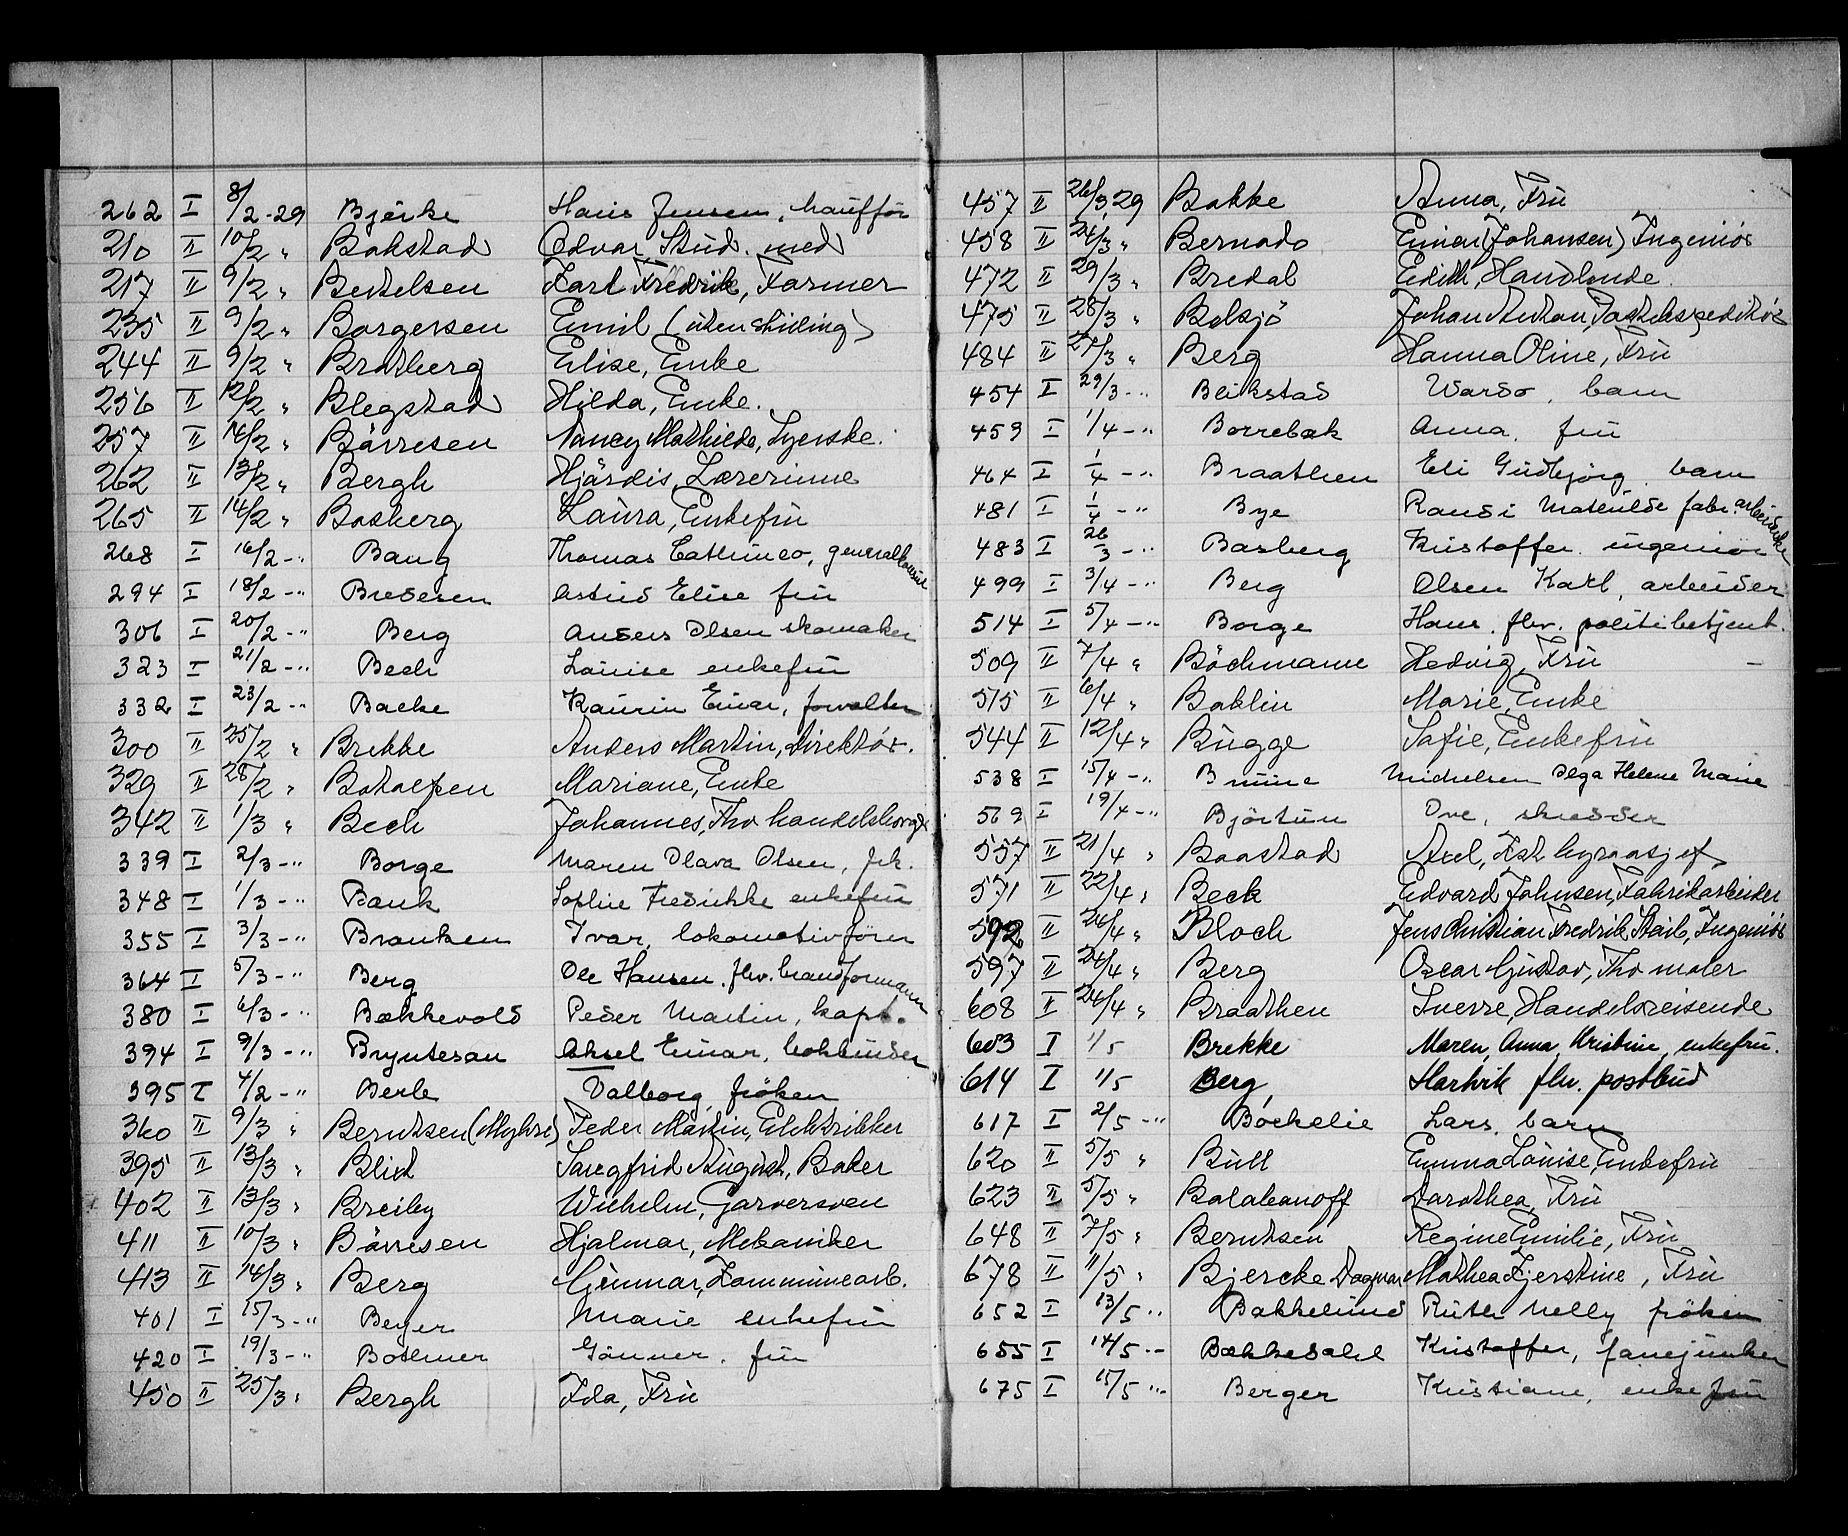 262 I 8/2-29 Bjerke Hans Jensen, chauffør
210 II 10/2 " Bakstad Odvar Stud. med
217 II 9/2 " Bertelsen Karl Fredrik, Farmer
235 II 9/2 " Borgersen Emil (uten stilling)
244 II 9/2 " Bratberg Elise, Enke
256 II 12/2 " Blegstad Hilda, Enke.
257 II 14/2 " Børresen Nancy Mathilde, Syerske.
262 II 13/2 " Bergh Hjørdis, Lærerinne
265 II 14/2 " Basberg Laura, Enkefru
268 I 16/2 -" Bang Thomas Cathrinco, generalkonsul
294 I 18/2 -" Bredesen Astrid Elise fru
306 I 20/2 -" Berg Anders Olsen skomaker
323 I 21/2 -" Bech Louise enkefru
332 I 23/2 -" Backe Laurin Einar, forvalter
300 II 25/2 " Brekke Anders Martin, Direktør.
329 II 28/2 " Botolfsen Mariane, Enke
342 II 1/3 " Bech Johannes, Fhv handelsborger
339 I 2/3 -" Borge Maren Olava Olsen, frk.
348 I 1/3 -" Bank Sophie Fredrikke enkefru
355 I 3/3 -" Branken Ivar, lokomotivfører
364 I 5/3 -" Berg Ole Hansen, fhv. brandformann
380 I 6/3 -" Bækkevold Peder Martin, kapt.
394 I 9/3 -" Bryntesan Aksel Einar, bokbinder
395 I 4/2 -" Berle Valborg, frøken
360 II 9/3 " Berntsen (Myhre) Peder Martin, Elektrikker
395 II 13/3 " Blixt Saregfrid August, Baker
402 II 13/3 " Breiby Wilhelm, Garversven
411 II 10/3 " Børresen Hjalmar, Mekaniker
413 II 14/3 " Berg Gunnar, Tommermearb.
401 I 15/3 -" Beyer Marie enkefru
420 I 19/3 -" Bothner Gönner, fru
450 II 25/3 " Bergh Ida, Fru
457 II 26/3 29 Bakke Anna, Fru
458 II 24/3 " Bernado Einar (Johansen) Ingeniør
472 II 29/3 " Bredal Edith, Handlende.
475 II 28/3 " Bølsjø Johan Anton, Postekspeditør
484 II 27/3 " Berg Hanna Oline, Fru
454 I 29/3 -" Blikstad Vardo, barn
459 I 1/4 -" Borrebæk Anna, fru
464 I 1/4 -" Braathen Eli Gudbjørg, barn
481 I 1/4 -" Bye Randi Mathilde fabr. arbeiderske
483 I 26/3 -" Basberg Kristoffer ingeniør
499 I 3/4 -" Berg Olsen Karl, arbeider
514 I 5/4 -" Borge Hans, fhv. politibetjent.
509 II 7/4 " Böchmann Hedvig, Fru
515 II 6/4 " Boklin Marie, Enke
544 II 12/4 " Bugge Sofie, Enkefru
538 I 15/4 -" Bruun Michelsen Olga Helene Marie
569 I 19/4 -" Bjørtun Ove, skredder
557 II 21/4 " Baastad Axel, Fsk byraasjef
571 II 22/4 " Beck Edvard Johnsen, Fabrikarbeider
592 II 24/4 " Bloch Jens Christian Fredrik Staib, Ingeniør
597 II 24/4 " Berg Oscar Gustav, Fhv maler
608 II 24/4 " Braathen Sverre, Handelsreisende
603 I 1/5 Brekke Maren, Anna, Kristine, enkefru.
614 I 1/5 Berg, Hartvik fhv. postbud
617 I 2/5 -" Böckelie Lars, barn
620 II 5/5 " Bull Emma Louise, Enkefru
623 II 5/5 " Balabanoff Dorothea, Fru
648 II 7/5 " Berntsen Regine Emilie, Fru
678 II 11/5 " Bjercke Dagmar Mathea Kjerstine, Fru
652 I 13/5 -" Bakkelund Ruth Nelly frøken
655 I 14/5 -" Bækkedahl Kristoffer, fanejunker
675 I 15/5 -" Berger Kristiane, enkefru